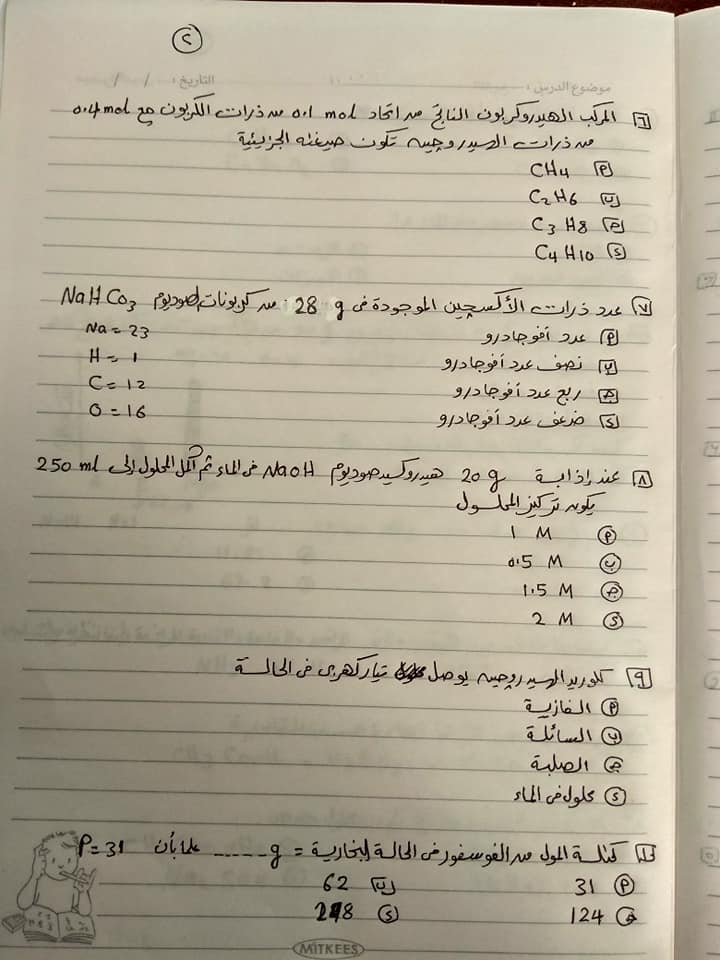 ٢
موضوع الدرس : التاريخ : / /
٦ المركب الهيدروكربون الناتج من اتحاد 0.1 mol من ذرات الكربون مع 0.4 mol
من ذرات الهيدروجين تكون صيغته الجزيئية
P CH4
ب C2H6
ج C3H8
د C4H10
٧ عدد ذرات الأكسجين الموجودة فى 28 g من كربونات الصوديوم NaHCO3
P عدد أفوجادرو Na = 23
ب نصف عدد أفوجادرو H = 1
ج ربع عدد أفوجادرو C = 12
د ضعف عدد أفوجادرو O = 16
٨ عند إذابة 20 g هيدروكسيد صوديوم NaOH فى الماء ثم أكمل المحلول إلى 250 ml
يكون تركيز المحلول
P 1 M
ب 0.5 M
ج 1.5 M
د 2 M
٩ كلوريد الهيدروجين يوصل تيار كهربى فى الحالة
P الغازية
ب السائلة
ج الصلبة
د محلول فى الماء
١٠ كتلة المول من الفوسفور فى الحالة البخارية = ----- g علما بأن P = 31
P 31 ب 62
ج 124 د 248
MITKEES